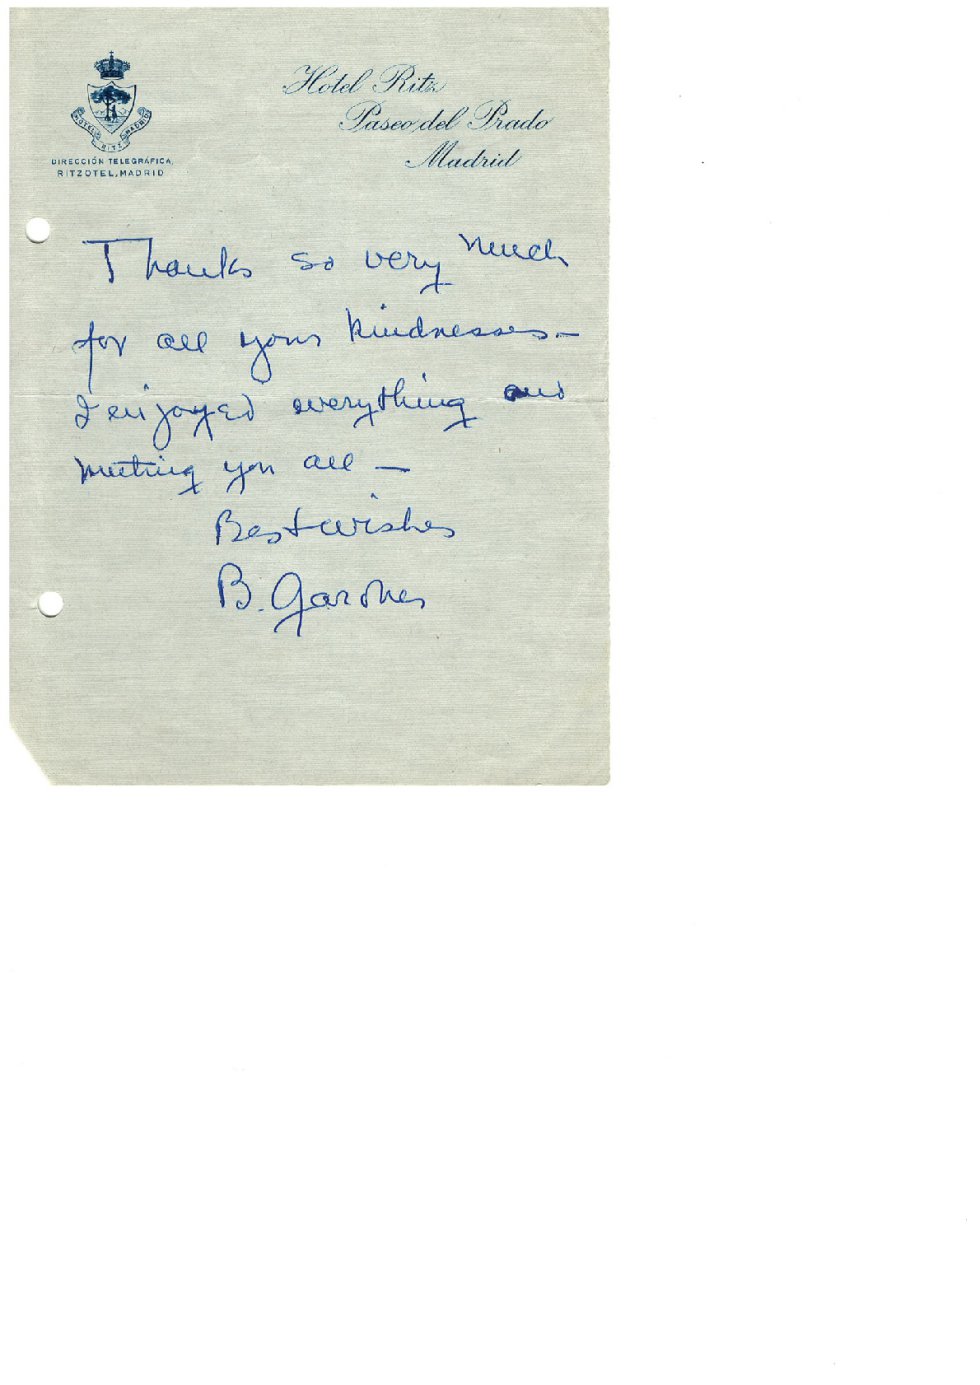 Hotel Ritz
Paseo del Prado
Madrid
HOTEL RITZ MADRID
DIRECCIÓN TELEGRÁFICA,
RITZOTEL, MADRID
Thanks so very much
for all your kindnesses—
I enjoyed everything and
meeting you all —
Best wishes
B. Gardner